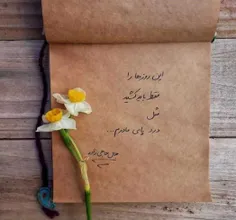 این روزها را
فقط باید کشید
مثل
درد پای مادرم...